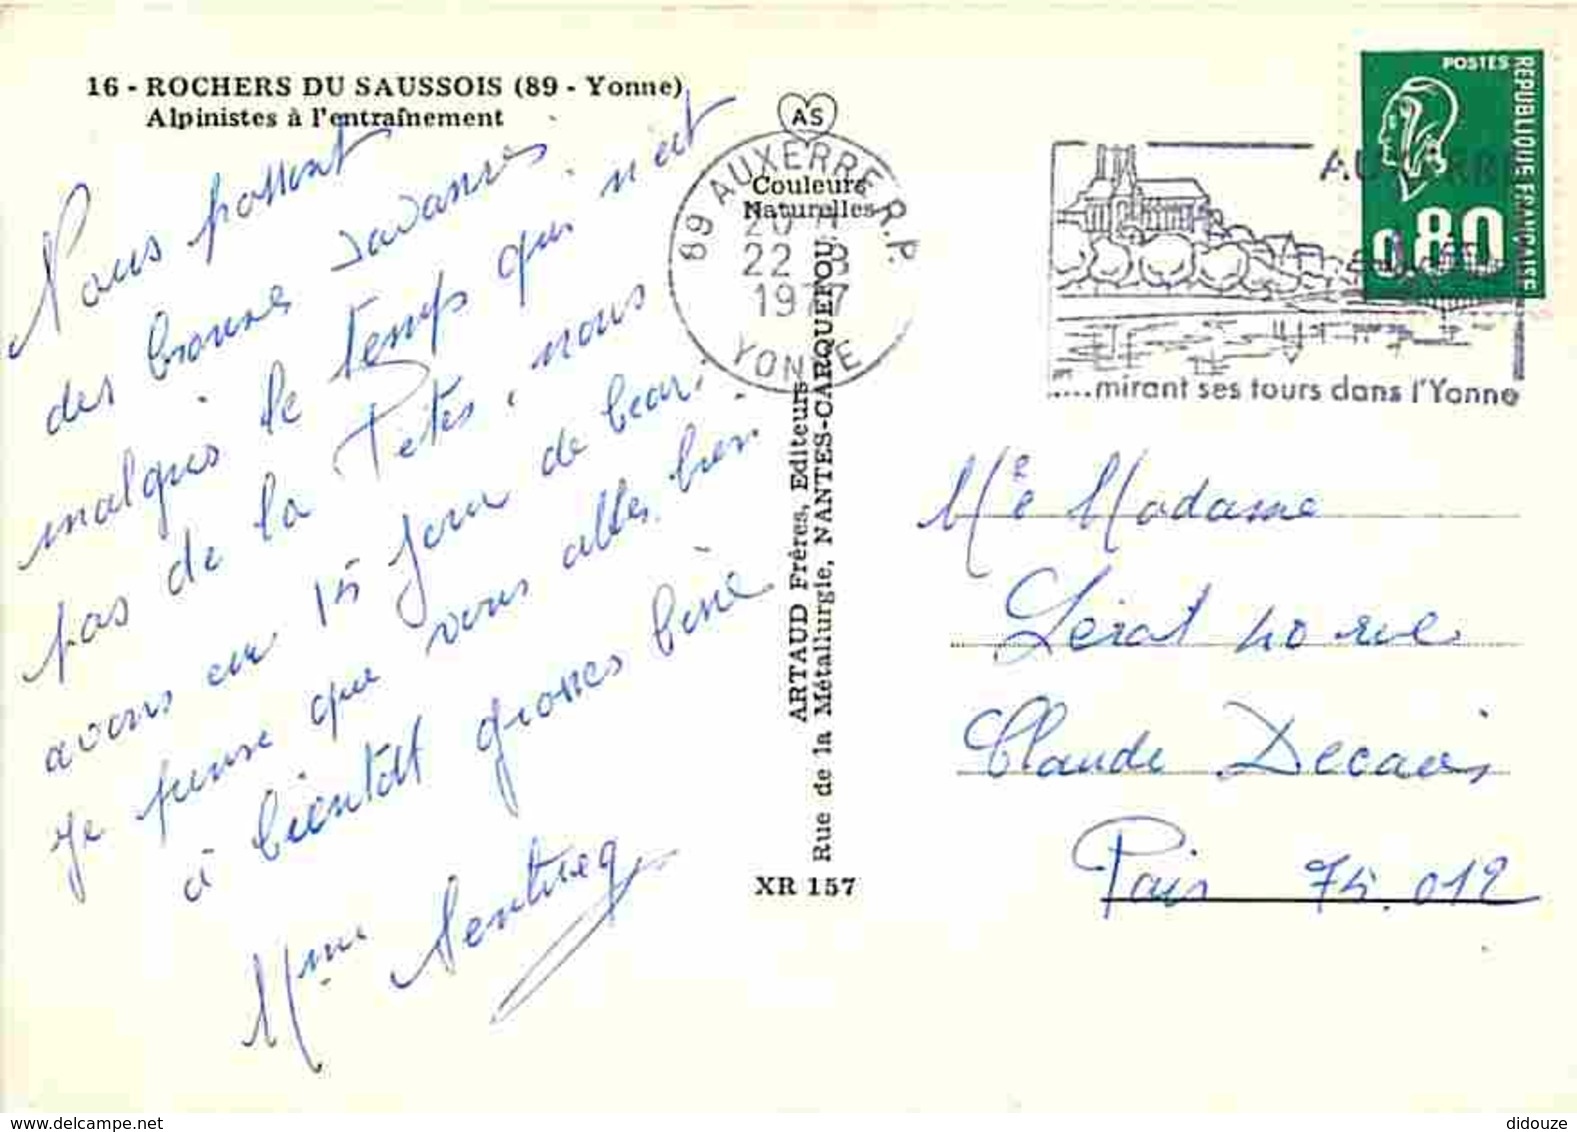 16 - ROCHERS DU SAUSSOIS (89 - Yonne)
Alpinistes à l'entraînement
Nous passont
des bonnes vavanses
malgrés le temps qui n'est
pas de la Fêtes, nous
avons eu 15 jour de beau.
Je pense que vous allez bien.
à bientôt grosses bise
Mme
AS
Couleurs
Naturelles
89 AUXERRE R.P.
22 8
1977
YONNE
ARTAUD Frères, Editeurs
Rue de la Métallurgie, NANTES-CARQUEFOU
XR 157
POSTES
REPUBLIQUE FRANÇAISE
0.80
AUXERRE
.....mirant ses tours dans l'Yonne
Mr et Madame
Lerat 40 rue
Claude Decaens
Paris 75.012
didouze